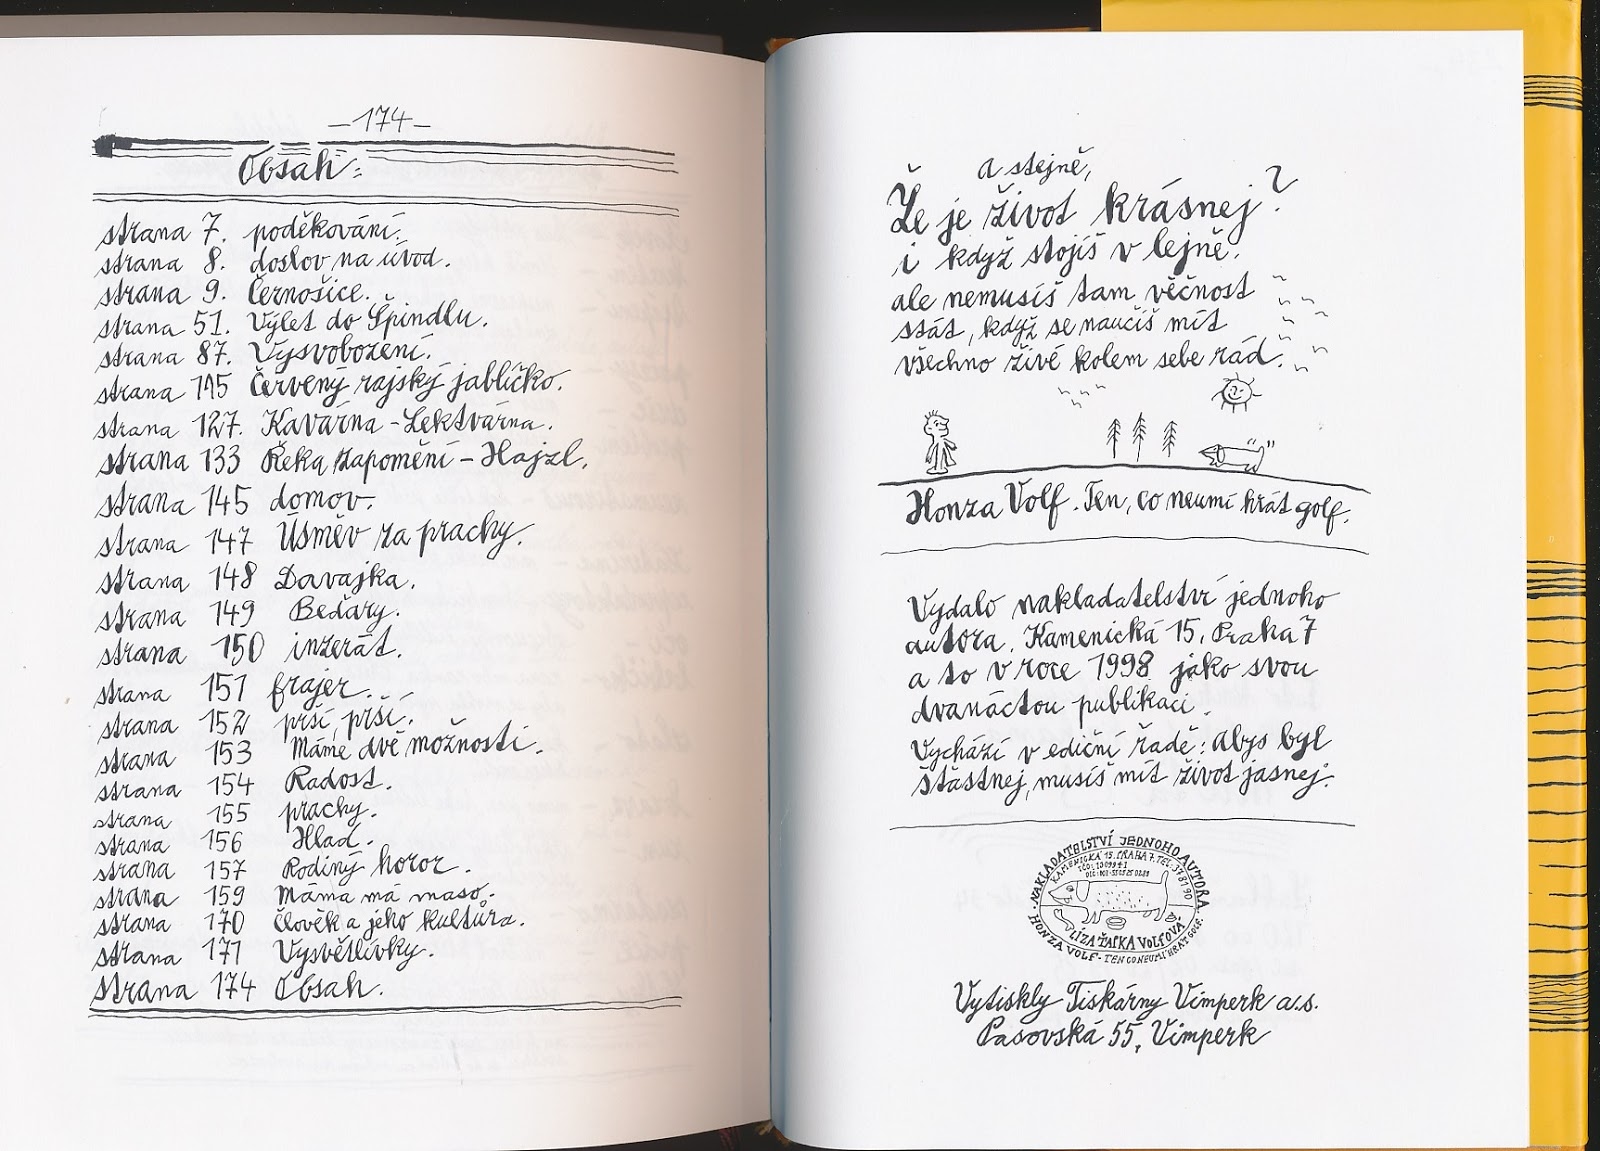 – 174 –
Obsah:
strana 7. poděkování.
strana 8. doslov na úvod.
strana 9. Černošice.
strana 51. Výlet do Špindlu.
strana 87. Vysvobození.
strana 115 Červený rajský jablíčko.
strana 127. Kavárna – Lektvárna.
strana 133 Řeka zapomění – Hajzl.
strana 145 domov.
strana 147 Úsměv za prachy.
strana 148 Davajka.
strana 149 Bečary.
strana 150 inzerát.
strana 151 frajer.
strana 152 prší, prší.
strana 153 Máme dvě možnosti.
strana 154 Radost.
strana 155 prachy.
strana 156 Hlad.
strana 157 Rodiný horor.
strana 159 Máma má maso.
strana 170 Člověk a jeho kultůra.
strana 171 Vysvětlívky.
strana 174 Obsah.
a stejně,
Že je život krásnej?
i když stojíš v lejně.
ale nemusíš tam věčnost
stát, když se naučíš mít
všechno živé kolem sebe rád.
Honza Volf. Ten, co neumí hrát golf.
Vydalo nakladatelství jednoho
autora, Kamenická 15, Praha 7
a to v roce 1998 jako svou
dvanáctou publikaci.
Vychází v ediční řadě: Abys byl
šťastnej, musíš mít život jasnej.
· NAKLADATELSTVÍ JEDNOHO AUTORA ·
KAMENICKÁ 15. PRAHA 7. TEL:
LÍZA ŤAPKA VOLFOVÁ
HONZA VOLF · TEN CO NEUMÍ HRÁT GOLF
Vytiskly Tiskárny Vimperk a.s.
Pasovská 55, Vimperk